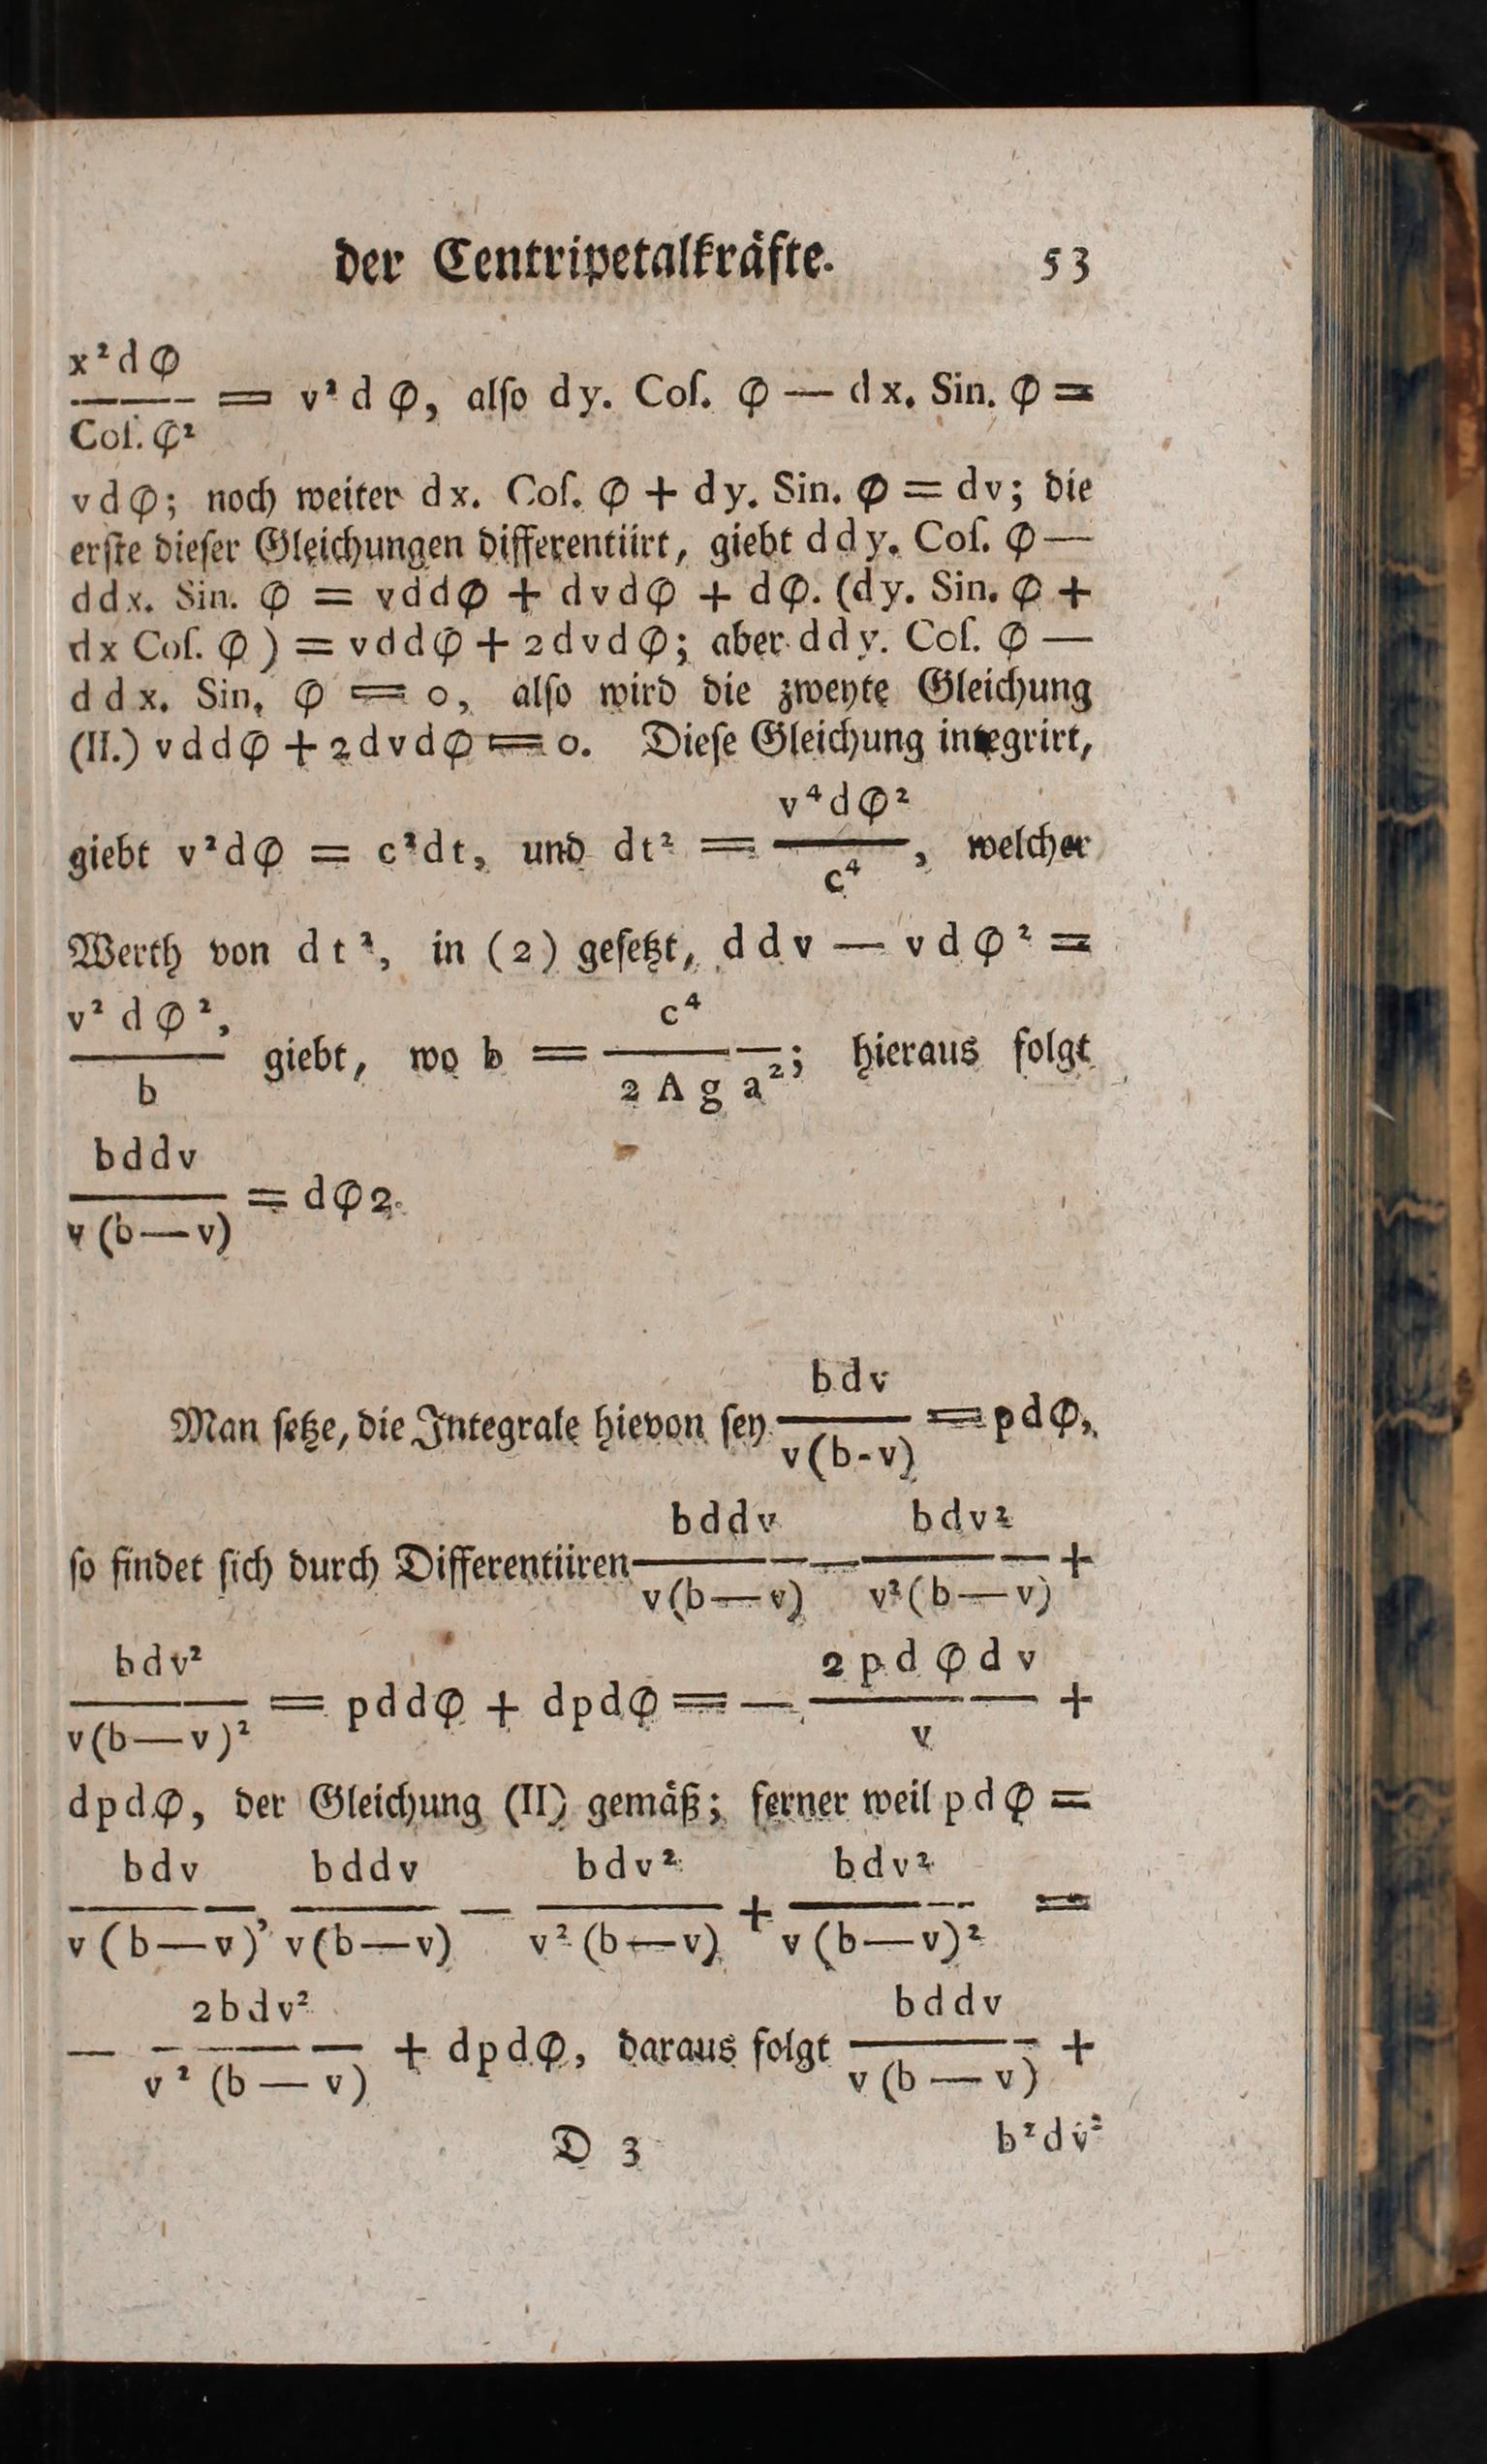 der Centripetalkräfte. 53
x²dφ
———— = v²dφ, alſo dy. Coſ. φ — dx. Sin. φ =
Coſ. φ²
vdφ; noch weiter dx. Coſ. φ + dy. Sin. φ = dv; die
erſte dieſer Gleichungen differentiirt, giebt ddy. Coſ. φ —
ddx. Sin. φ = vddφ + dvdφ + dφ. (dy. Sin. φ +
dx Coſ. φ) = vddφ + 2dvdφ; aber ddy. Coſ. φ —
ddx. Sin. φ = 0, alſo wird die zweyte Gleichung
(II.) vddφ + 2dvdφ = 0. Dieſe Gleichung integrirt,
v⁴dφ²
giebt v²dφ = c²dt, und dt² = ————, welcher
c⁴
Werth von dt², in (2) geſetzt, ddv — vdφ² =
v² dφ², c⁴
———— giebt, wo b = ————; hieraus folgt
b 2 A g a²
bddv
———— = dφ2.
v (b—v)
bdv
Man ſetze, die Integrale hievon ſey ———— = pdφ,
v(b-v)
bddv bdv²
ſo findet ſich durch Differentiiren ———— — ———— +
v(b—v) v²(b—v)
bdv² 2pdφdv
———— = pddφ + dpdφ = — ———— +
v(b—v)² v
dpdφ, der Gleichung (II) gemäß; ferner weil pdφ =
bdv bddv bdv² bdv²
————, ———— — ———— + ———— =
v(b—v) v(b—v) v²(b—v) v(b—v)²
2bdv² bddv
— ———— + dpdφ, daraus folgt ———— +
v²(b—v) v(b—v)
D 3 b²dv²